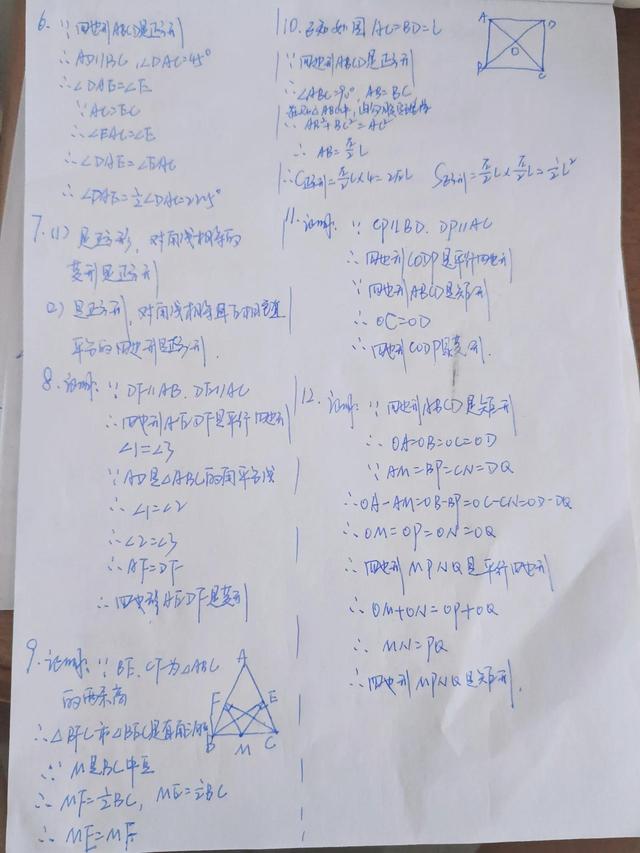 6. ∵四边形ABCD是正方形
∴AD∥BC,∠DAC=45°
∴∠DAE=∠E
∵AC=EC
∴∠EAC=∠E
∴∠DAE=∠EAC
∴∠DAE=½∠DAC=22.5°
7.(1) 是正方形,对角线相等的
菱形是正方形
(2) 是正方形,对角线相等且互相垂直
平分的四边形是正方形.
8. 证明:∵DF∥AB.DE∥AC
∴四边形AEDF是平行四边形
∠1=∠3
∵AD是△ABC的角平分线
∴∠1=∠2
∴∠2=∠3
∴AF=DF
∴四边形AEDF是菱形
9. 证明:∵BE.CF为△ABC
的两条高
∴△BFC和△BEC是直角
∵M是BC中点
∴MF=½BC, ME=½BC
∴ME=MF
A
F
E
B
M
C
10. 已知如图AC=BD=L
∵四边形ABCD是正方形
∴∠ABC=90°,AB=BC
在Rt△ABC中,由勾股定理得
∴AB²+BC²=AC²
∴AB=√2/2 L
∴C正方形=√2/2 L×4=2√2L S正方形=√2/2 L×√2/2 L=½L²
A
D
O
B
C
11. 证明:∵CP∥BD.DP∥AC
∴四边形CODP是平行四边形
∵四边形ABCD是矩形
∴OC=OD
∴四边形CODP是菱形.
12. 证明:∵四边形ABCD是矩形
∴OA=OB=OC=OD
∵AM=BP=CN=DQ
∴OA-AM=OB-BP=OC-CN=OD-DQ
∴OM=OP=ON=OQ
∴四边形MPNQ是平行四边形
∴OM+ON=OP+OQ
∴MN=PQ
∴四边形MPNQ是矩形.